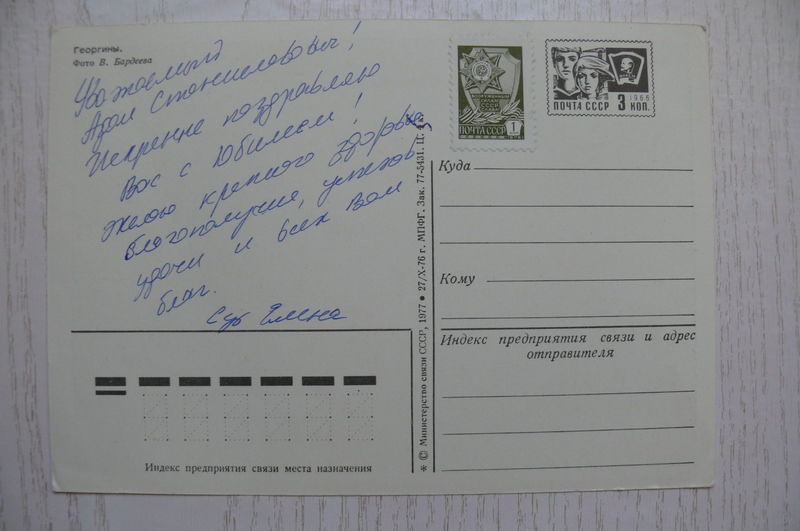 Георгины.
Фото В. Бардеева
Уважаемый
Адам Станиславович!
Искренне поздравляю
Вас с Юбилеем!
желаю крепкого здоровья,
благополучия, успехов
удачи и всех Вам
благ.
Елена
ПОЧТА СССР 1
1966
ПОЧТА СССР 3 КОП.
Куда
Кому
Индекс предприятия связи и адрес
отправителя
Индекс предприятия связи места назначения
* © Министерство связи СССР, 1977 ● 27/X-76 г. МПФГ. Зак. 77-5431. Ц. 4 к.